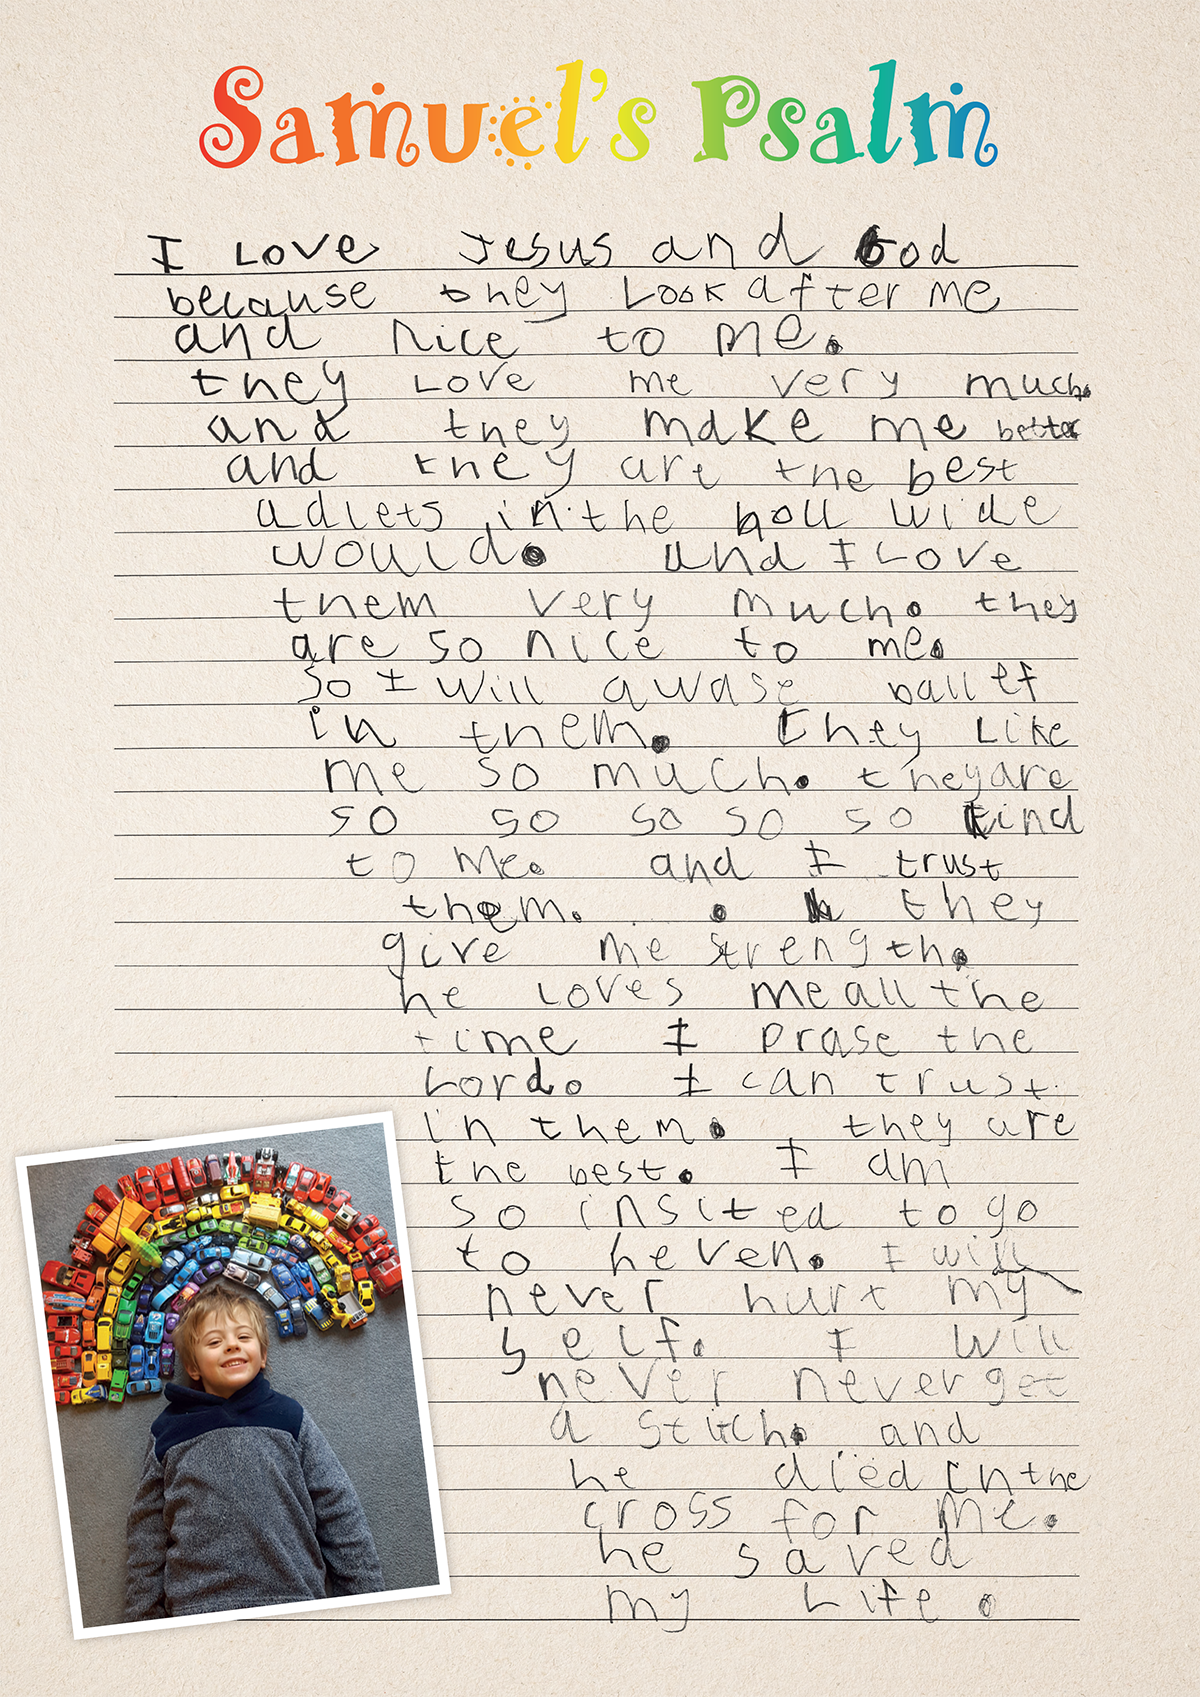 Samuel's Psalm
I Love Jesus and God
because they Look after me
and nice to me.
they Love me very much.
and they make me better
and they are the best
adlets in the holl wide
would. and I Love
them very much. they
are so nice to me.
so I will awase ballef
in them. they Like
me so much. they are
so so so so so kind
to me. and I trust
them. . they
give me strength.
he Loves me all the
time I prase the
Lord. I can trust
in them. they are
the best. I am
so insited to go
to heven. I will
never hurt my
self. I will
never never get
a stitch. and
he died in the
cross for me.
he saved
my Life.